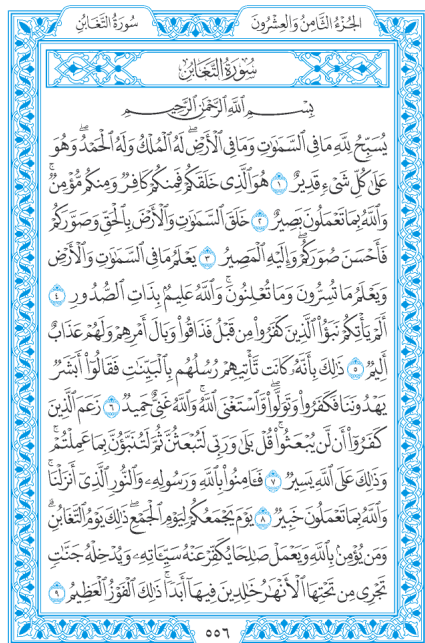 الجُزْءُ الثَّامِنُ وَالعِشْرُونَ سُورَةُ التَّغَابُنِ
سُورَةُ التَّغَابُنِ
بِسْمِ ٱللَّهِ ٱلرَّحْمَٰنِ ٱلرَّحِيمِ
يُسَبِّحُ لِلَّهِ مَا فِي ٱلسَّمَٰوَٰتِ وَمَا فِي ٱلْأَرْضِۖ لَهُ ٱلْمُلْكُ وَلَهُ ٱلْحَمْدُۖ وَهُوَ
عَلَىٰ كُلِّ شَيْءٖ قَدِيرٌ ١ هُوَ ٱلَّذِي خَلَقَكُمْ فَمِنكُمْ كَافِرٞ وَمِنكُم مُّؤْمِنٞۚ
وَٱللَّهُ بِمَا تَعْمَلُونَ بَصِيرٌ ٢ خَلَقَ ٱلسَّمَٰوَٰتِ وَٱلْأَرْضَ بِٱلْحَقِّ وَصَوَّرَكُمْ
فَأَحْسَنَ صُوَرَكُمْۖ وَإِلَيْهِ ٱلْمَصِيرُ ٣ يَعْلَمُ مَا فِي ٱلسَّمَٰوَٰتِ وَٱلْأَرْضِ
وَيَعْلَمُ مَا تُسِرُّونَ وَمَا تُعْلِنُونَۚ وَٱللَّهُ عَلِيمُۢ بِذَاتِ ٱلصُّدُورِ ٤
أَلَمْ يَأْتِكُمْ نَبَؤُاْ ٱلَّذِينَ كَفَرُواْ مِن قَبْلُ فَذَاقُواْ وَبَالَ أَمْرِهِمْ وَلَهُمْ عَذَابٌ
أَلِيمٞ ٥ ذَٰلِكَ بِأَنَّهُۥ كَانَت تَّأْتِيهِمْ رُسُلُهُم بِٱلْبَيِّنَٰتِ فَقَالُوٓاْ أَبَشَرٞ
يَهْدُونَنَا فَكَفَرُواْ وَتَوَلَّواْۖ وَّٱسْتَغْنَى ٱللَّهُۚ وَٱللَّهُ غَنِيٌّ حَمِيدٞ ٦ زَعَمَ ٱلَّذِينَ
كَفَرُوٓاْ أَن لَّن يُبْعَثُواْۚ قُلْ بَلَىٰ وَرَبِّي لَتُبْعَثُنَّ ثُمَّ لَتُنَبَّؤُنَّ بِمَا عَمِلْتُمْۚ
وَذَٰلِكَ عَلَى ٱللَّهِ يَسِيرٞ ٧ فَـَٔامِنُواْ بِٱللَّهِ وَرَسُولِهِۦ وَٱلنُّورِ ٱلَّذِيٓ أَنزَلْنَاۚ
وَٱللَّهُ بِمَا تَعْمَلُونَ خَبِيرٞ ٨ يَوْمَ يَجْمَعُكُمْ لِيَوْمِ ٱلْجَمْعِۖ ذَٰلِكَ يَوْمُ ٱلتَّغَابُنِۗ
وَمَن يُؤْمِنۢ بِٱللَّهِ وَيَعْمَلْ صَٰلِحٗا يُكَفِّرْ عَنْهُ سَيِّـَٔاتِهِۦ وَيُدْخِلْهُ جَنَّٰتٖ
تَجْرِي مِن تَحْتِهَا ٱلْأَنْهَٰرُ خَٰلِدِينَ فِيهَآ أَبَدٗاۚ ذَٰلِكَ ٱلْفَوْزُ ٱلْعَظِيمُ ٩
٥٥٦